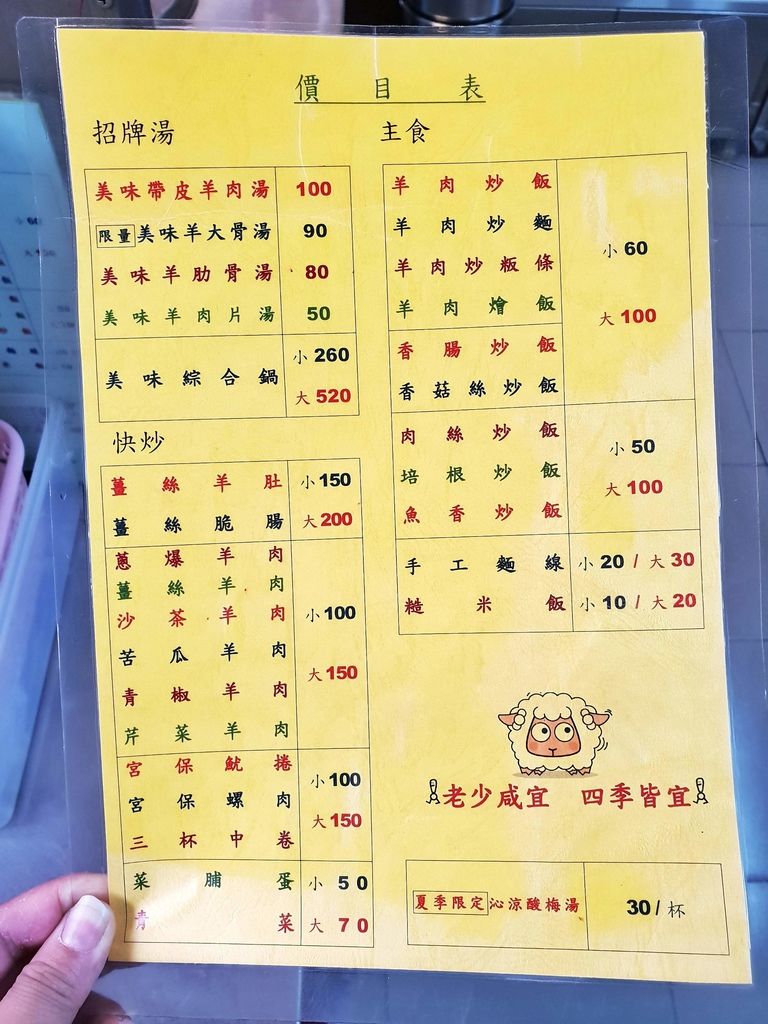 價目表
招牌湯
美味帶皮羊肉湯 100
限量美味羊大骨湯 90
美味羊肋骨湯 80
美味羊肉片湯 50
美味綜合鍋 小 260
大 520
快炒
薑絲羊肚 小 150
薑絲脆腸 大 200
蔥爆羊肉
薑絲羊肉
沙茶羊肉 小 100
苦瓜羊肉
青椒羊肉 大 150
芹菜羊肉
宮保魷捲 小 100
宮保螺肉
三杯中卷 大 150
菜脯蛋 小 50
青菜 大 70
主食
羊肉炒飯
羊肉炒麵 小 60
羊肉炒粄條
羊肉燴飯 大 100
香腸炒飯
香菇絲炒飯
肉絲炒飯 小 50
培根炒飯 大 100
魚香炒飯
手工麵線 小 20 / 大 30
糙米飯 小 10 / 大 20
老少咸宜 四季皆宜
夏季限定沁涼酸梅湯 30 / 杯